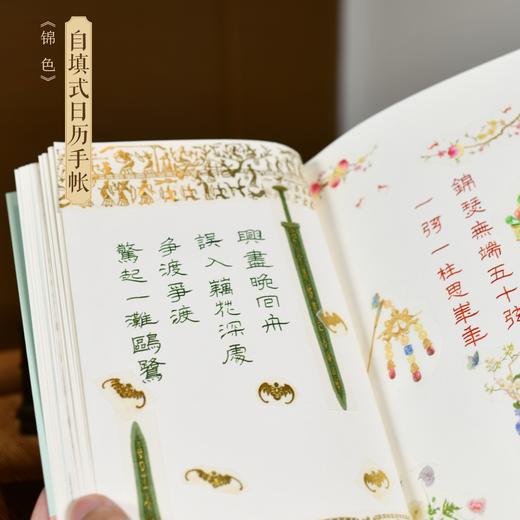 《锦色》
自填式日历手帐
興盡晚回舟
誤入藕花深處
爭渡爭渡
驚起一灘鷗鷺
錦瑟無端五十弦
一弦一柱思華年